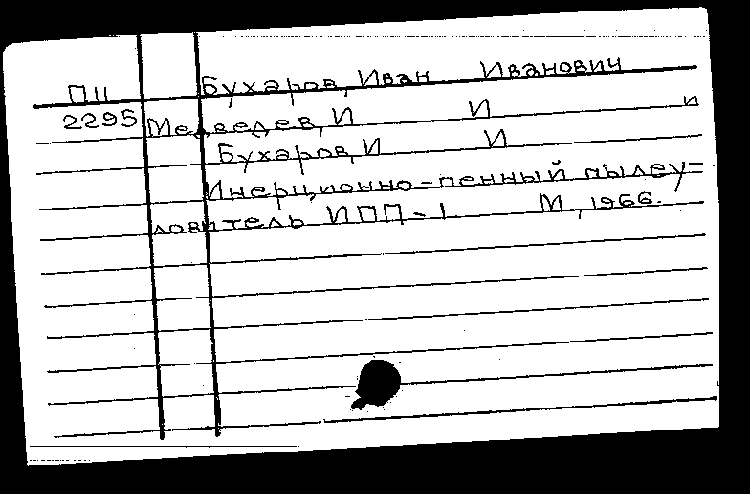 П11 Бухаров, Иван Иванович
2295 Медведев, И И и
Бухаров, И И
Инерционно-пенный пылеу-
ловитель ИПП-1 М, 1966.